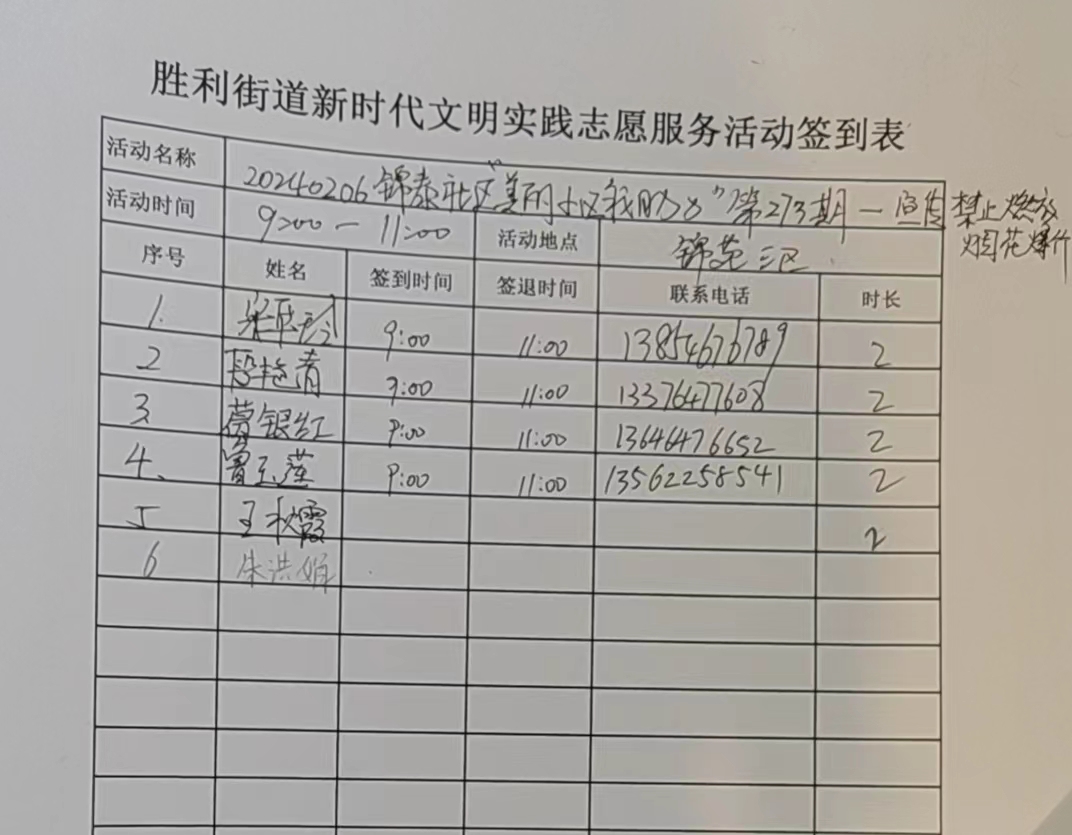 胜利街道新时代文明实践志愿服务活动签到表
活动名称 20240206锦泰社区“美丽小区我助力”第273期—宣传禁止燃放烟花爆竹
活动时间 9:00—11:00 活动地点 锦苑三区
序号 姓名 签到时间 签退时间 联系电话 时长
1. 9:00 11:00 13854676789 2
2 段艳青 9:00 11:00 13376477608 2
3. 葛银红 9:00 11:00 13646476652 2
4、 曹玉莲 9:00 11:00 13562258541 2
5 王秋霞 2
6 朱洪娟